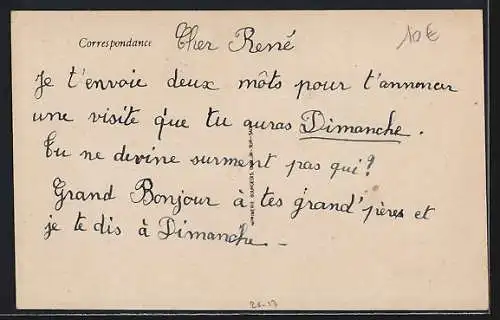 Correspondance Cher René 10€
Je t'envoie deux môts pour t'annoncer
une visite que tu auras Dimanche.
Tu ne devine surment pas qui?
Grand Bonjour à tes grand'pères et
je te dis à Dimanche -
26-13